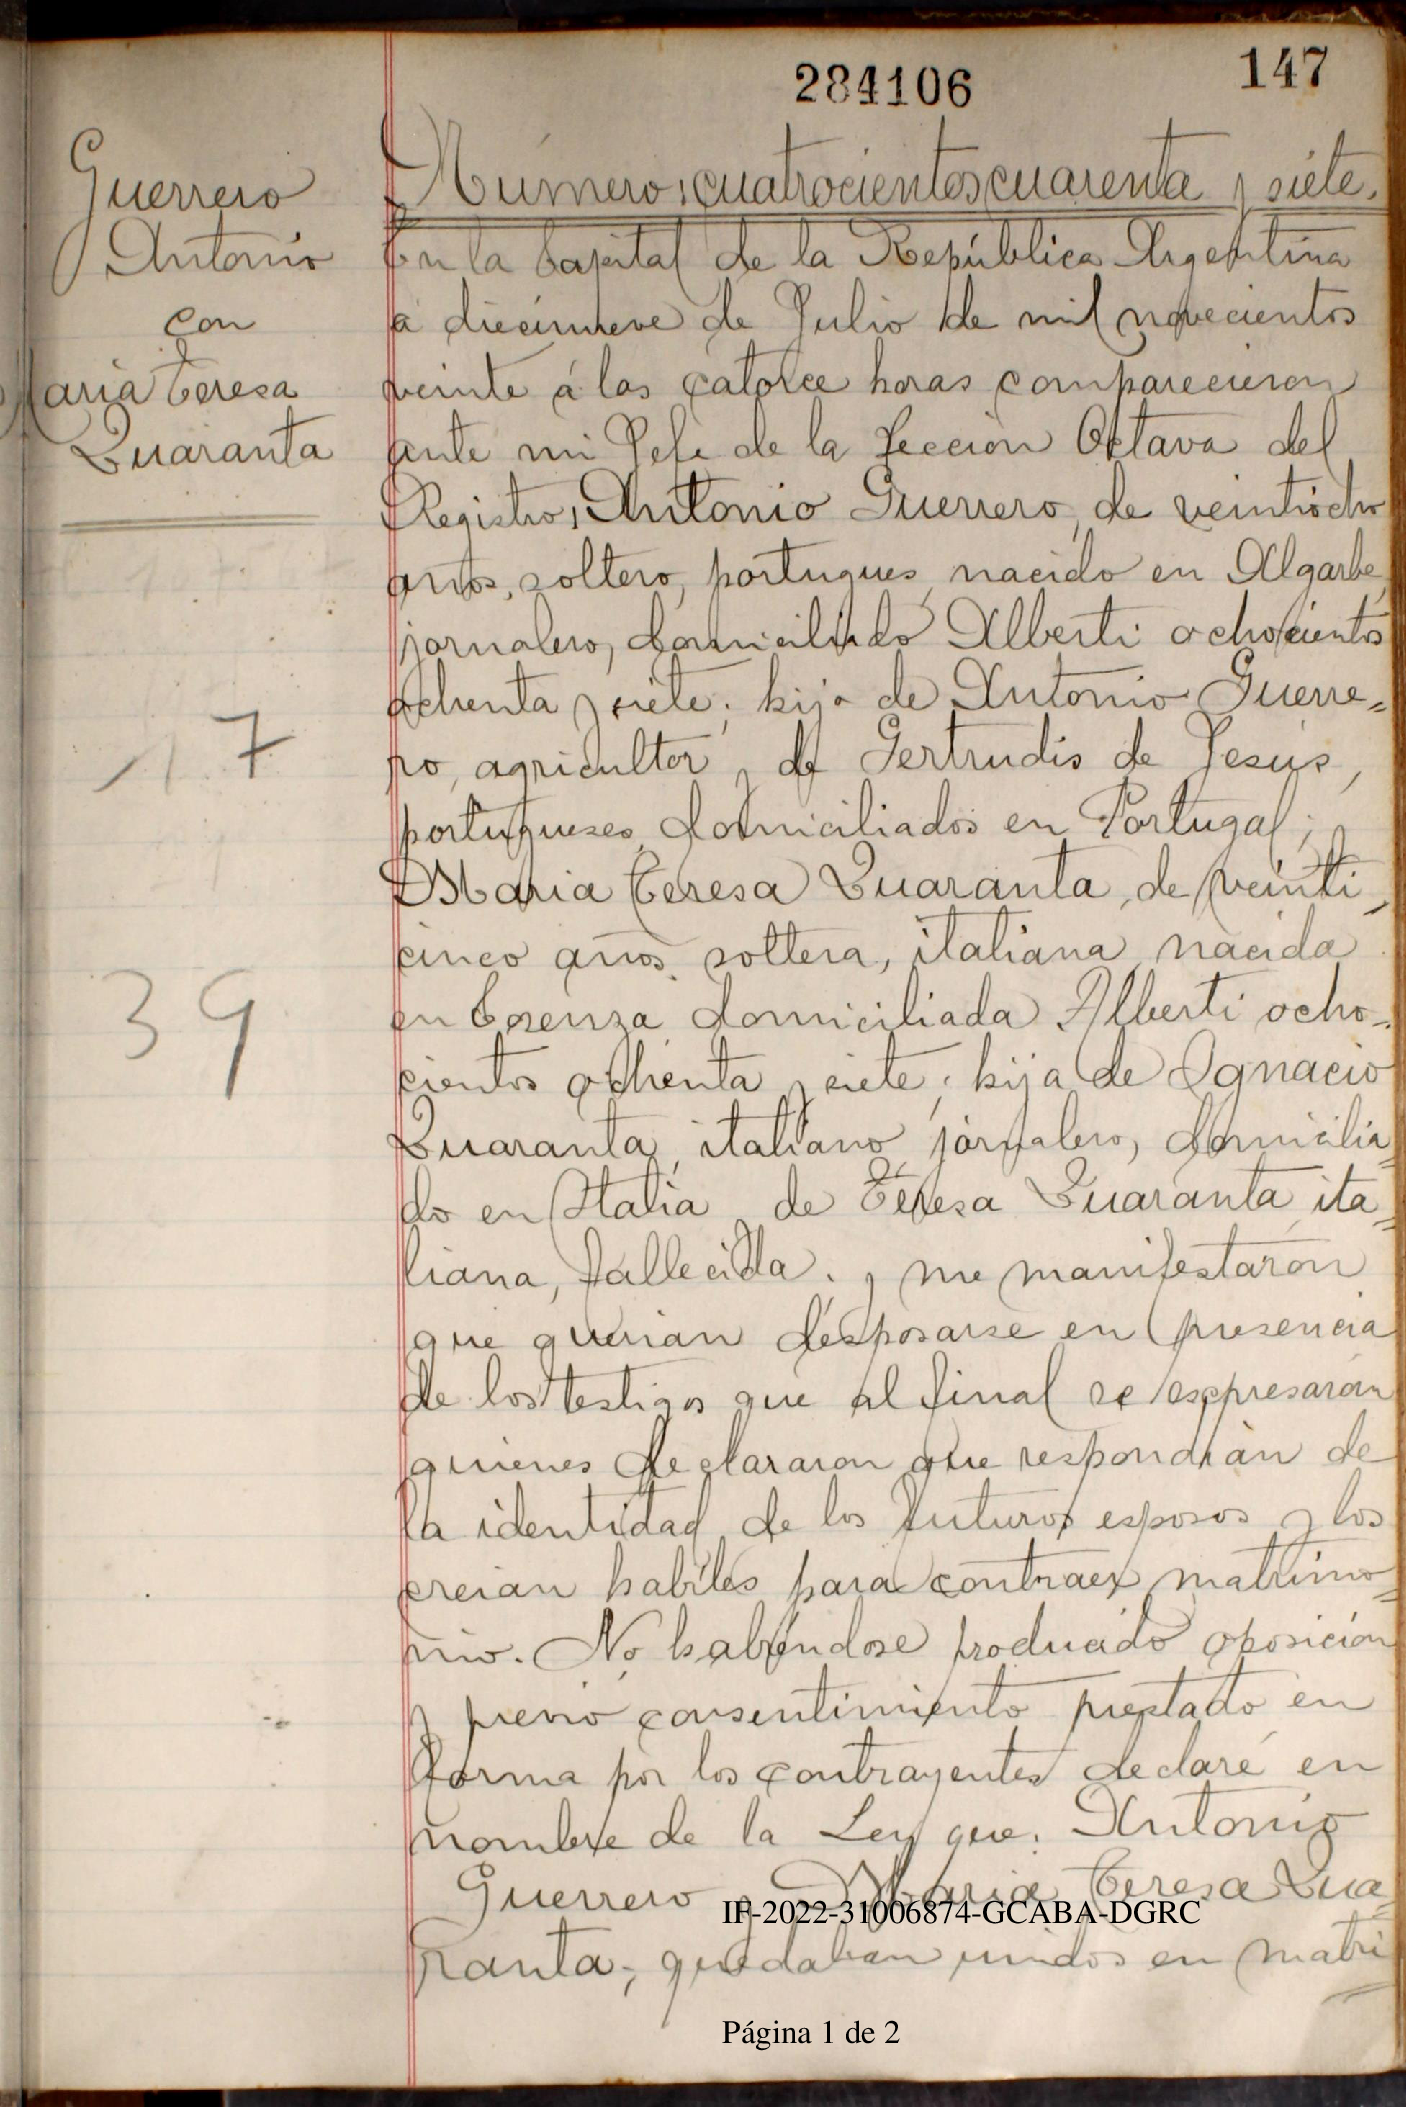 284106
147
Guerrero
Antonio
con
Maria Teresa
Quaranta
17
39
Número: cuatrocientos cuarenta y siete.
En la Capital de la República Argentina
a diecinueve de Julio de mil novecientos
veinte á las catorce horas comparecieron
ante mi Jefe de la Sección Octava del
Registro, Antonio Guerrero, de veintiocho
años, soltero, portugues, nacido en Algarbe,
jornalero, domiciliado Alberti ochocientos
ochenta y siete; hijo de Antonio Guerre=
ro, agricultor y de Gertrudis de Jesús,
portugueses, domiciliados en Portugal; y
Maria Teresa Quaranta, de veinti=
cinco años, soltera, italiana, nacida
en Cosenza domiciliada Alberti ocho=
cientos ochenta y siete; hija de Ignacio
Quaranta, italiano, jornalero, domicilia=
do en Italia y de Teresa Quaranta, ita=
liana, fallecida; y me manifestaron
que querian desposarse en presencia
de los testigos que al final se expresarán
quienes declararon que respondian de
la identidad de los futuros esposos y los
creian habiles para contraer matrimo=
nio. No habiéndose producido oposición
y previo consentimiento prestado en
forma por los contrayentes declaré en
nombre de la Ley que: Antonio
Guerrero y Maria Teresa Qua=
ranta; quedaban unidos en matri=
IF-2022-31006874-GCABA-DGRC
Página 1 de 2